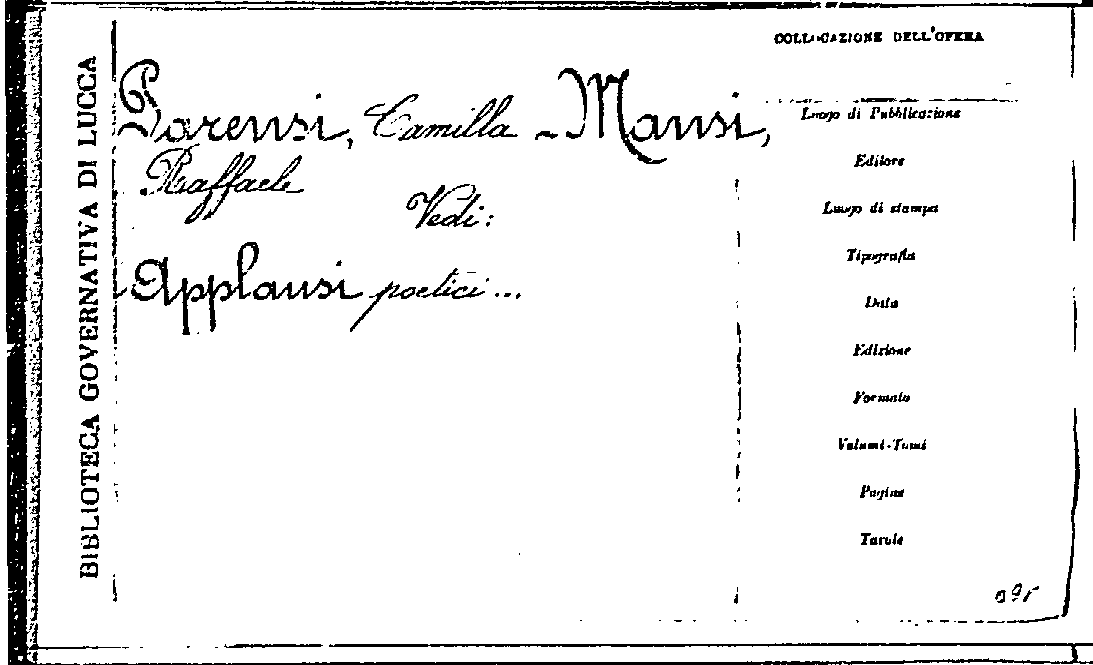 BIBLIOTECA GOVERNATIVA DI LUCCA
Parensi, Camilla - Mansi,
Raffaele
Vedi:
Applausi poetici...
COLLOCAZIONE DELL'OPERA
Luogo di Pubblicazione
Editore
Luogo di stampa
Tipografia
Data
Edizione
Formato
Volumi-Tomi
Pagine
Tavole